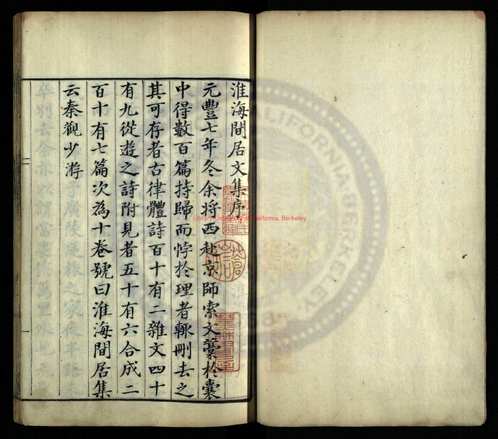 淮海閒居文集序
元豐七年冬余將西赴京師索文藁於囊
中得數百篇持歸而悖於理者輙刪去之
其可存者古律體詩百十有二雜文四十
有九從遊之詩附見者五十有六合成二
百十有七篇次為十卷號曰淮海閒居集
云秦觀少游